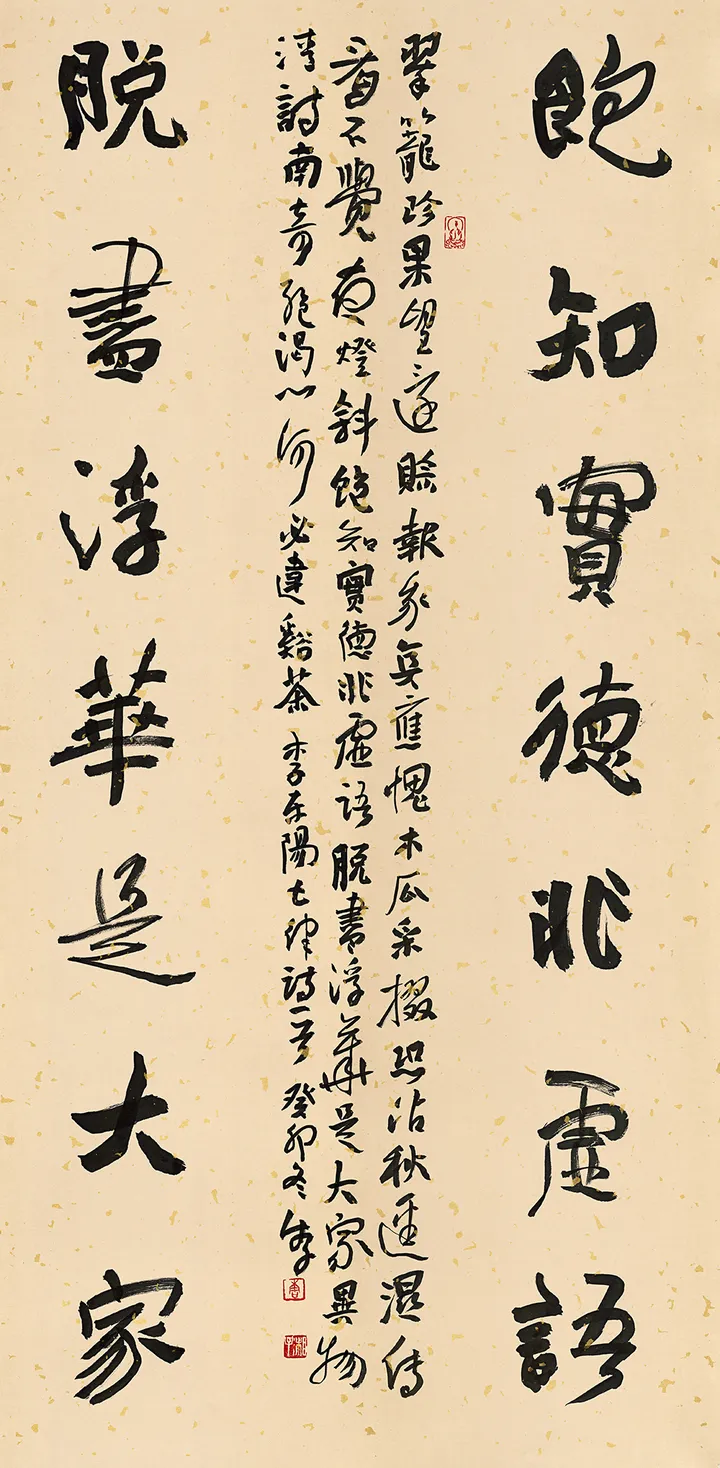 飽知實德非虛語
翠籠珍果望賒報我真應愧木瓜采掇恐沾秋逕濕傳
看不覺夜燈斜飽知實德非虛語脫盡浮華是大家異物
清詩南奇絕渴心何必違谿茶 李東陽七律詩一首 癸卯冬
脫盡浮華是大家